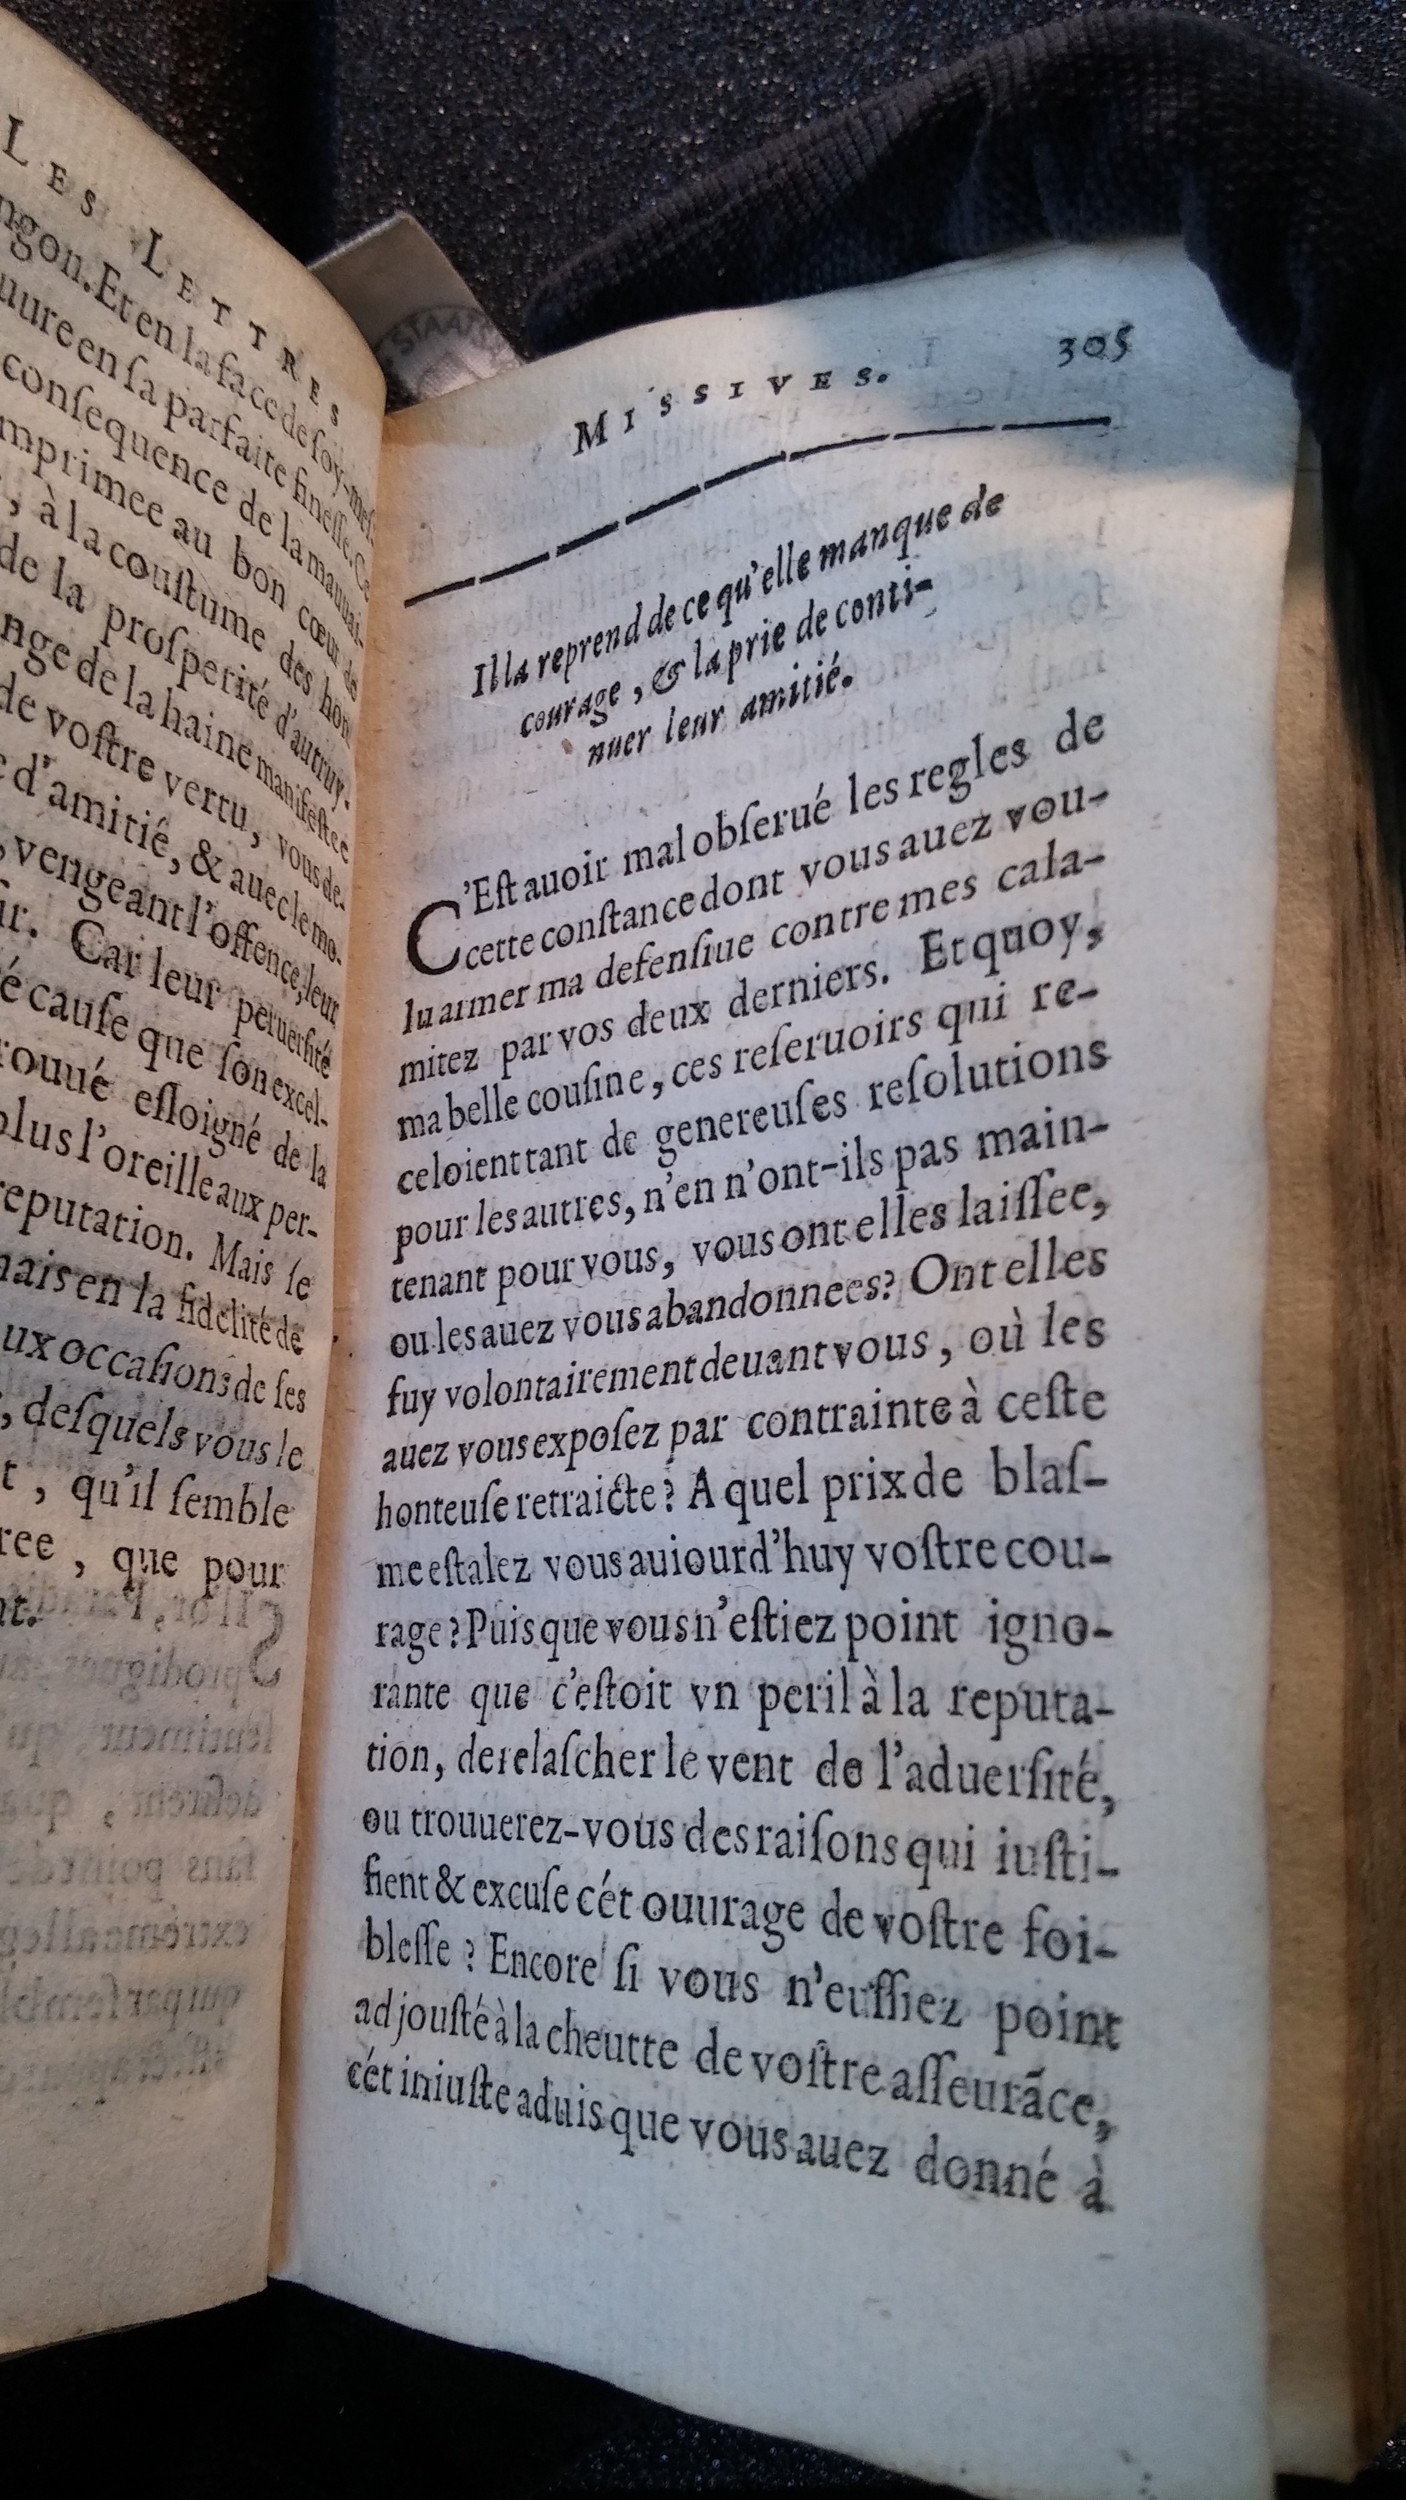 LES LETTRES
ngon. Et en la face de soy-mes
uure en sa parfaite finesse. Ce
consequence de la mauuai-
mprimee au bon cœur de
, à la coustume des hom
de la prosperité d'autruy.
nge de la haine manifestee
de vostre vertu, vous de-
d'amitié, & auec le mo-
, vengeant l'offence, leur
ir. Car leur peruersité
é cause que son excel-
rouué esloigné de la
plus l'oreille aux per-
reputation. Mais se
mais en la fidelité de
ux occasions de ses
, desquels vous le
t , qu'il semble
ree , que pour
nt.
MISSIVES. 305
Il la reprend de ce qu'elle manque de
courage , & la prie de conti-
nuer leur amitié.
C'Est auoir mal obserué les regles de
cette constance dont vous auez vou-
lu armer ma defensiue contre mes cala-
mitez par vos deux derniers. Et quoy,
ma belle cousine, ces reseruoirs qui re-
celoient tant de genereuses resolutions
pour les autres, n'en n'ont-ils pas main-
tenant pour vous, vous ont elles laissee,
ou les auez vous abandonnees? Ont elles
fuy volontairement deuant vous , où les
auez vous exposez par contrainte à ceste
honteuse retraicte? A quel prix de blas-
me estalez vous auiourd'huy vostre cou-
rage? Puis que vous n'estiez point igno-
rante que c'estoit vn peril à la reputa-
tion, de relascher le vent de l'aduersité,
ou trouuerez-vous des raisons qui iusti-
fient & excuse cét ouurage de vostre foi-
blesse ? Encore si vous n'eussiez point
adjousté à la cheutte de vostre asseurãce,
cét iniuste aduis que vous auez donné à